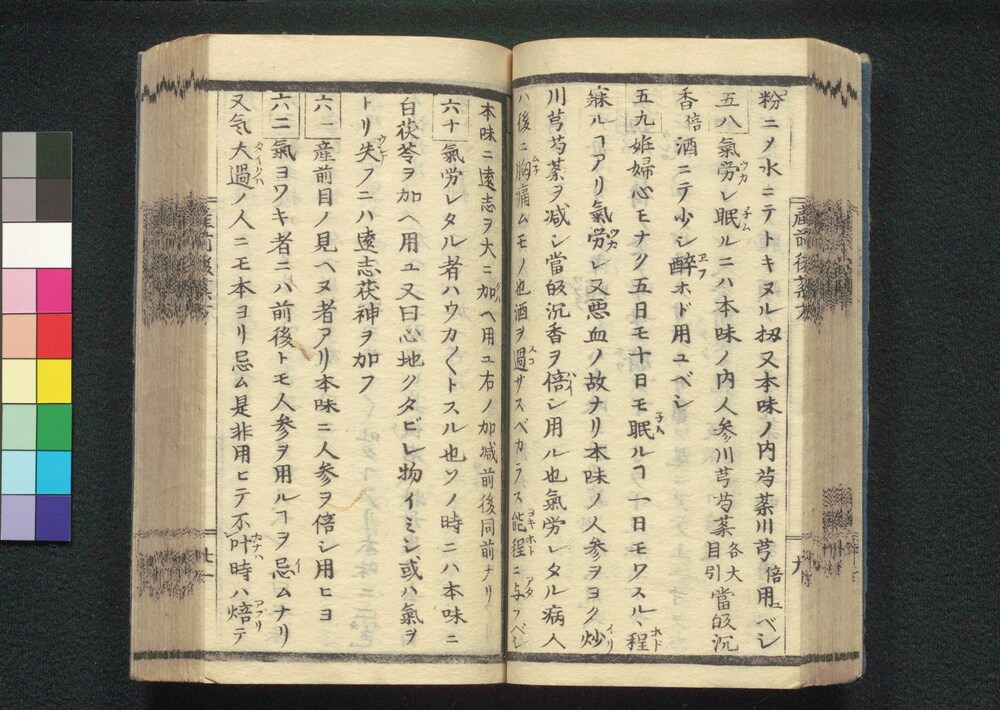 粉ニメ水ニテトキヌル扨又本味ノ内芍薬川芎倍用ユベシ
五八 氣労レ眠ルニハ本味ノ内人参川芎芍薬各大目引當皈沉
香倍酒ニテ少シ酔ホド用ユベシ
五九 姙婦心モナク五日モ十日モ眠ルヿ一日モワスルヽ程
ルヿアリ氣労レ又悪血ノ故ナリ本味ノ人参ヲヨク炒
川芎芍薬ヲ减シ當皈沉香ヲ倍シ用ル也氣労レタル病人
ハ後ニ胸痛ムモノ也酒ヲ過サスベカラス能程ニ与フベシ
本味ニ遠志ヲ大ニ加ヘ用ユ右ノ加减前後同前ナリ
六十 氣労レタル者ハウカ〱トスル也ソノ時ニハ本味ニ
白茯苓ヲ加ヘ用ユ又曰心地クタビレ物イミシ或ハ氣ヲ
トリ失フニハ遠志茯神ヲ加フ
六一 産前目ノ見ヘヌ者アリ本味ニ人参ヲ倍シ用ヒヨ
六二 氣ヨワキ者ニハ前後トモ人参ヲ用ルヿヲ忌ムナリ
又気大過ノ人ニモ本ヨリ忌ム是非用ヒテ不叶時ハ焙テ